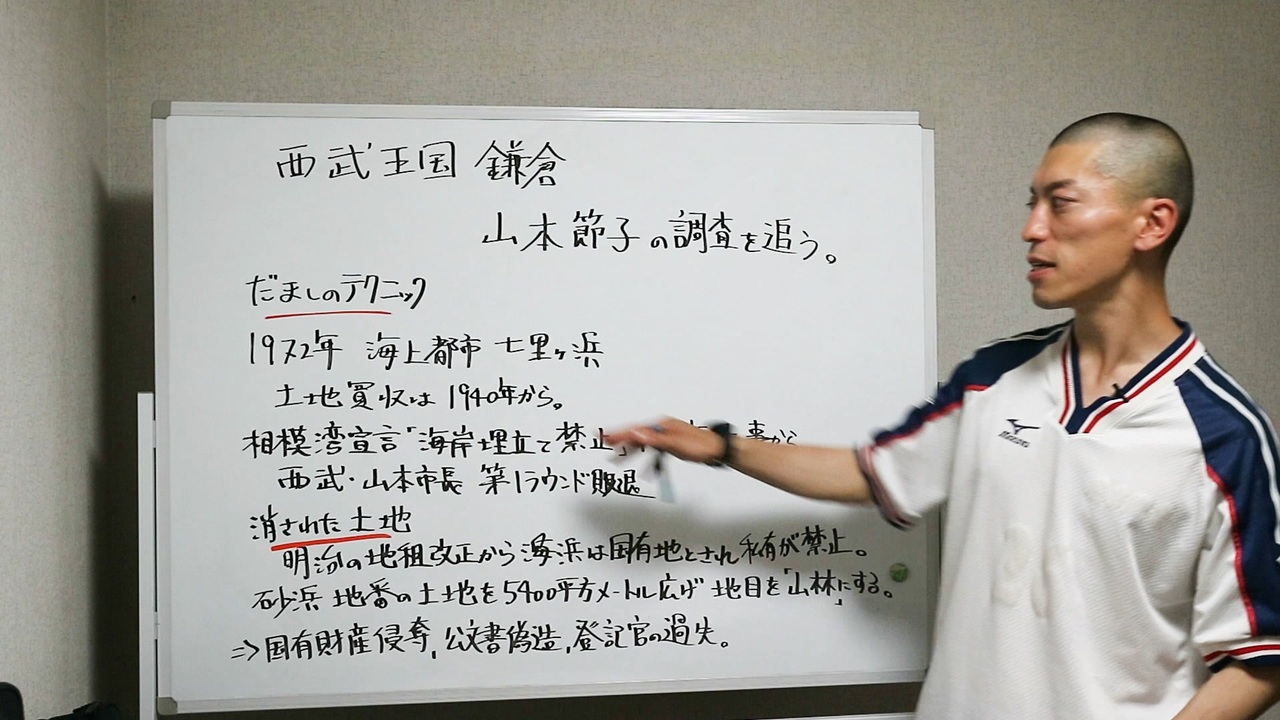 西武王国 鎌倉
山本節子の調査を追う。
だましのテクニック
1972年 海上都市 七里ヶ浜
土地買収は1940年から。
相模湾宣言「海岸埋立て禁止」 から
西武・山本市長 第1ラウンド敗退
消された土地
明治の地租改正から海浜は国有地とされ私有が禁止。
砂浜 地番の土地を5400平方メートル広げ 地目を「山林」にする。
⇒国有財産侵奪,公文書偽造,登記官の過失。
MIZUNO